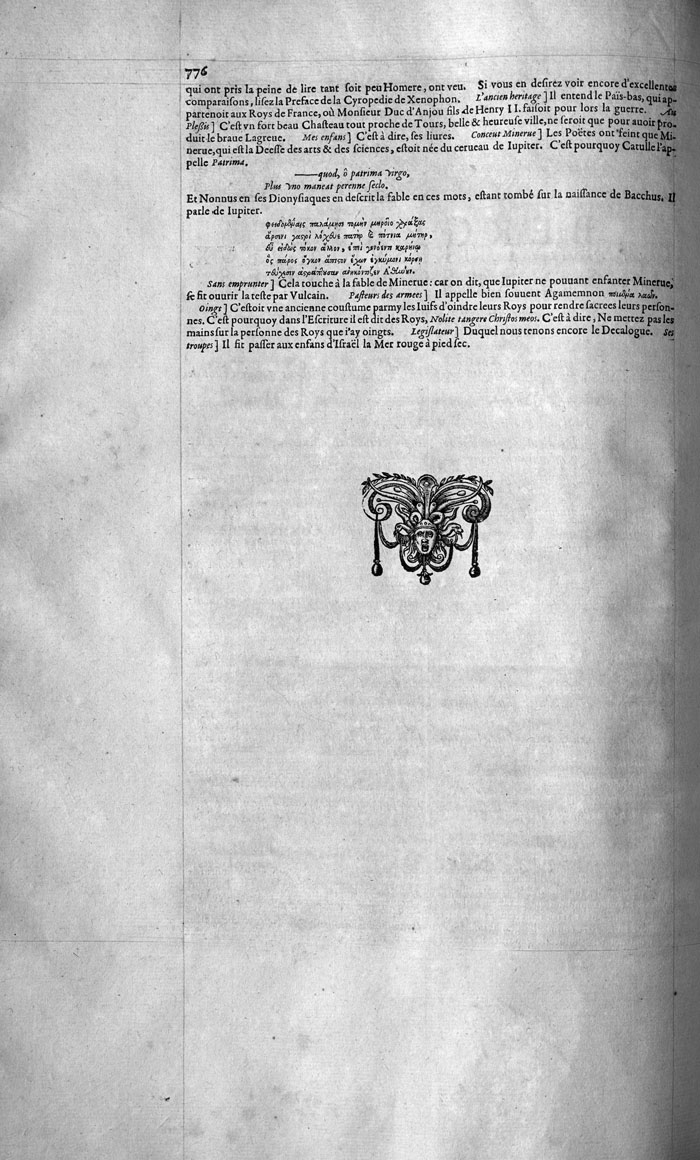 776
qui ont pris la peine de lire tant soit peu Homere, ont veu. Si vous en desirez voir encore d'excellentes
comparaisons, lisez la Preface de la Cyropedie de Xenophon. L'ancien heritage ] Il entend le Païs-bas, qui ap-
partenoit aux Roys de France, où Monsieur Duc d'Anjou fils de Henry II. faisoit pour lors la guerre. Au
Plessis ] C'est vn fort beau Chasteau tout proche de Tours, belle & heureuse ville, ne seroit que pour auoir pro-
duit le braue Lagreue. Mes enfans ] C'est à dire, ses liures. Conceut Minerue ] Les Poëtes ont feint que Mi-
nerue, qui est la Deesse des arts & des sciences, estoit née du cerueau de Iupiter. C'est pourquoy Catulle l'ap-
pelle Patrima.
——quod, ô patrima virgo,
Plus vno maneat perenne seclo.
Et Nonnus en ses Dionysiaques en descrit la fable en ces mots, estant tombé sur la naissance de Bacchus. Il
parle de Iupiter.
παλάμῃσι τομὴν μηροῖο χαράξας
ἄρσενι γαστρὶ λόχευε πατὴρ καὶ πότνια μήτηρ,
εἰδὼς τόκον ἄλλον, ἐπεὶ γονόεντι καρήνῳ
ὃς πάρος ὄγκον ἄπιστον ἔχων ἐγκύμονι κόρσῃ
τεύχεσιν ἀστράπτουσαν ἀνηκόντιζεν Ἀθήνην.
Sans emprunter ] Cela touche à la fable de Minerue : car on dit, que Iupiter ne pouuant enfanter Minerue,
se fit ouurir la teste par Vulcain. Pasteurs des armees ] Il appelle bien souuent Agamemnon ποιμένα λαῶν.
Oingt ] C'estoit vne ancienne coustume parmy les Iuifs d'oindre leurs Roys pour rendre sacrees leurs person-
nes. C'est pourquoy dans l'Escriture il est dit des Roys, Nolite tangere Christos meos. C'est à dire, Ne mettez pas les
mains sur la personne des Roys que i'ay oingts. Legislateur ] Duquel nous tenons encore le Decalogue. Ses
troupes ] Il fit passer aux enfans d'Israël la Mer rouge à pied sec.